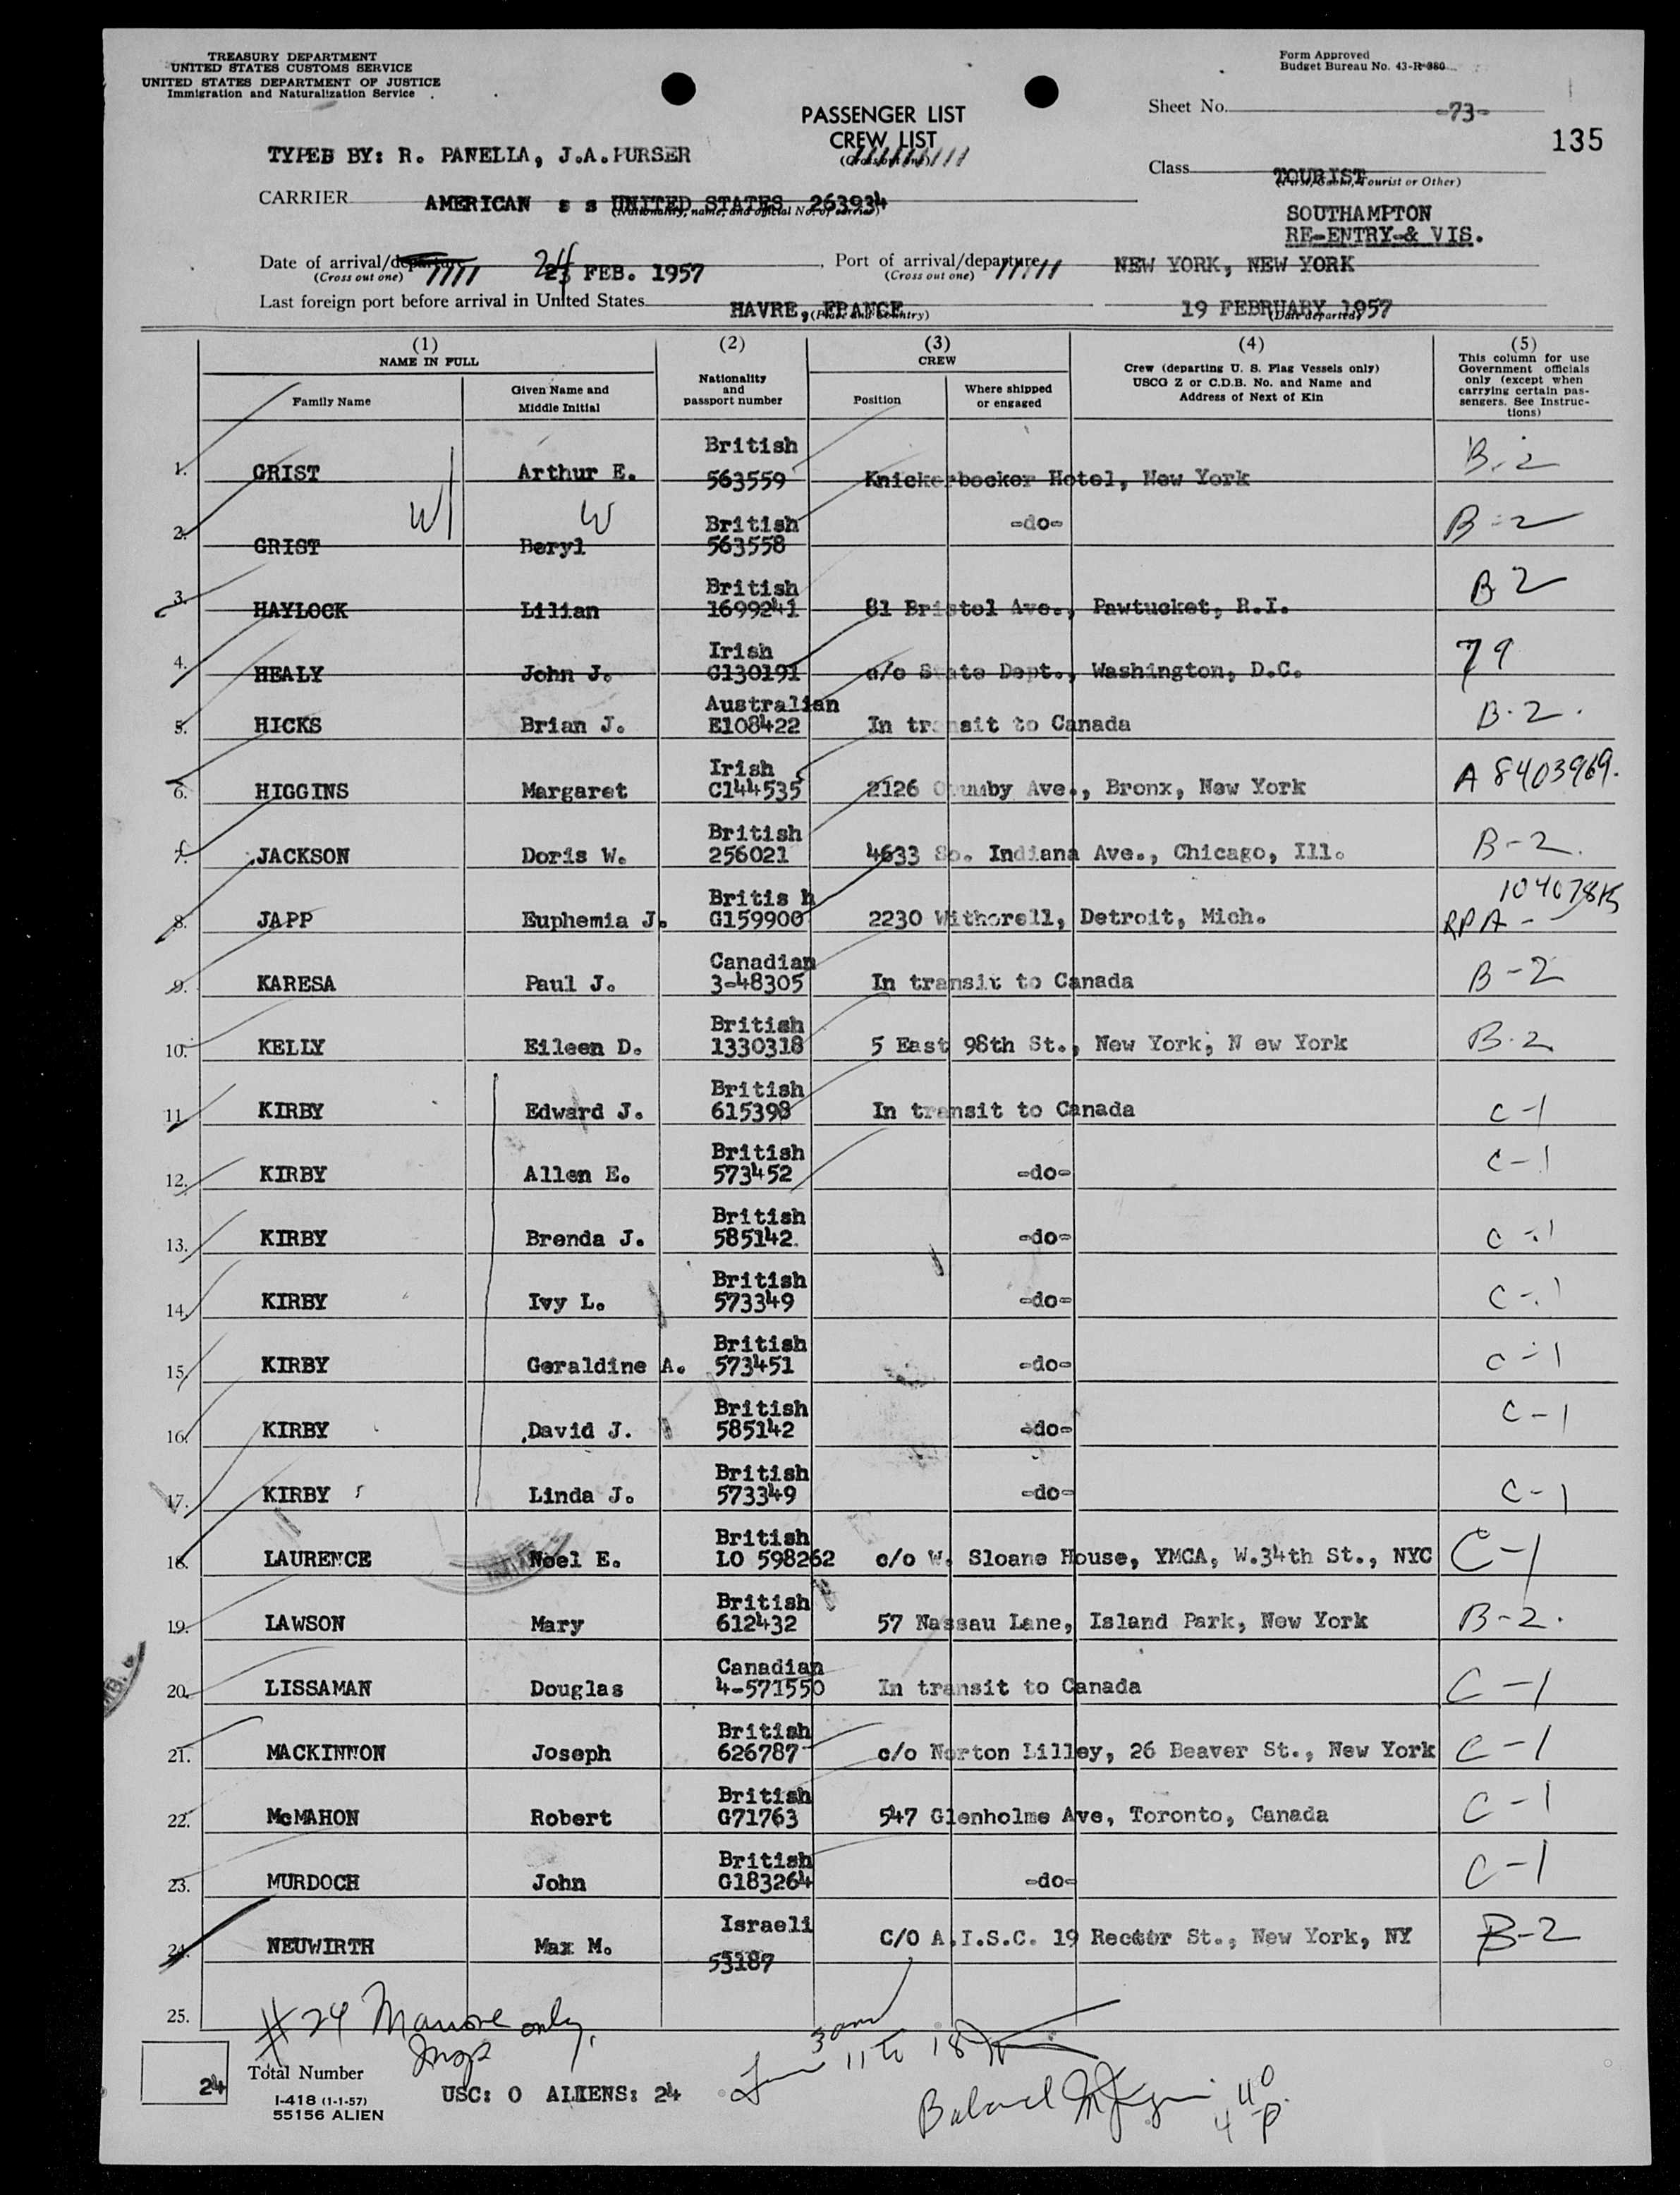 TREASURY DEPARTMENT
UNITED STATES CUSTOMS SERVICE
UNITED STATES DEPARTMENT OF JUSTICE
Immigration and Naturalization Service
Form Approved
Budget Bureau No. 43-R-380
PASSENGER LIST
CREW LIST
(Cross out one)
Sheet No. -73-
135
TYPED BY: R. PANELLA, J.A.PURSER
Class TOURIST
(First, Cabin, Tourist or Other)
CARRIER AMERICAN s s UNITED STATES 263934
(Nationality, name, and official No. of carrier)
SOUTHAMPTON
RE-ENTRY & VIS.
Date of arrival/departure 24 23 FEB. 1957 , Port of arrival/departure NEW YORK, NEW YORK
(Cross out one) (Cross out one)
Last foreign port before arrival in United States HAVRE, FRANCE 19 FEBRUARY 1957
(Place and Country) (Date departed)
(1) (2) (3) (4) (5)
NAME IN FULL
Family Name
Given Name and Middle Initial
Nationality and passport number
CREW
Position
Where shipped or engaged
Crew (departing U. S. Flag Vessels only)
USCG Z or C.D.B. No. and Name and
Address of Next of Kin
This column for use
Government officials
only (except when
carrying certain pas-
sengers. See Instruc-
tions)
1. GRIST Arthur E. British 563559 Knickerbocker Hotel, New York B-2
W/ W
2. GRIST Beryl British 563558 -do- B-2
3. HAYLOCK Lilian British 1699241 81 Bristol Ave., Pawtucket, R.I. B2
4. HEALY John J. Irish G130191 c/o State Dept., Washington, D.C. 79
5. HICKS Brian J. Australian E108422 In transit to Canada B-2.
6. HIGGINS Margaret Irish C144535 2126 Ave., Bronx, New York A 8403969.
7. JACKSON Doris W. British 256021 4633 So. Indiana Ave., Chicago, Ill. B-2.
8. JAPP Euphemia J. Britis h G159900 2230 Witherell, Detroit, Mich. RPA -
9. KARESA Paul J. Canadian 3-48305 In transit to Canada B-2
10. KELLY Eileen D. British 1330318 5 East 98th St., New York, N ew York B-2
11. KIRBY Edward J. British 615398 In transit to Canada C-1
12. KIRBY Allen E. British 573452 -do- C-1
13. KIRBY Brenda J. British 585142. -do- C-1
14. KIRBY Ivy L. British 573349 -do- C-1
15. KIRBY Geraldine A. British 573451 -do- C-1
16. KIRBY David J. British 585142 -do- C-1
17. KIRBY Linda J. British 573349 -do- C-1
18. LAURENCE Noel E. British LO 598262 c/o W. Sloane House, YMCA, W.34th St., NYC C-1
19. LAWSON Mary British 612432 57 Nassau Lane, Island Park, New York B-2.
20. LISSAMAN Douglas Canadian 4-571550 In transit to Canada C-1
21. MACKINNON Joseph British 626787 c/o Norton Lilley, 26 Beaver St., New York C-1
22. McMAHON Robert British G71763 547 Glenholme Ave, Toronto, Canada C-1
23. MURDOCH John British G183264 -do- C-1
24. NEUWIRTH Max M. Israeli 53187 C/O A.I.S.C. 19 Rector St., New York, NY B-2
25.
# 24 only.
11 to 18
24
Total Number
I-418 (1-1-57)
55156 ALIEN
USC: 0 ALIENS: 24